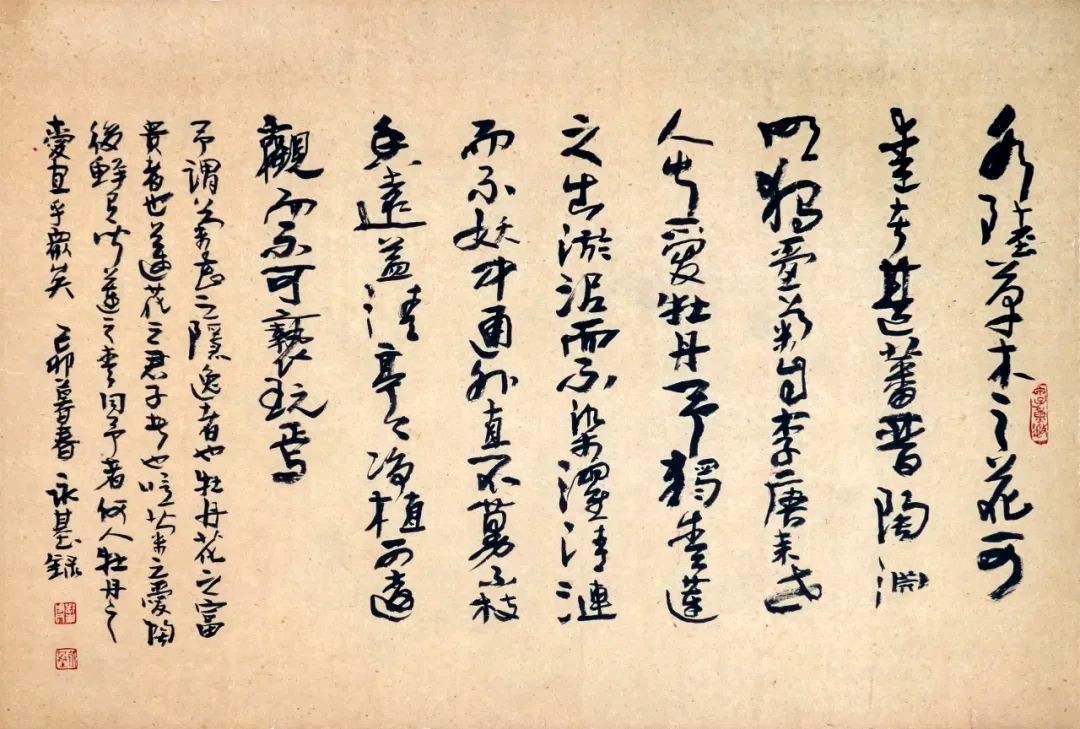 水陸草木之花可
愛者甚蕃晉陶淵
明獨愛菊自李唐来世
人甚愛牡丹予獨愛蓮
之出淤泥而不染濯清漣
而不妖中通外直不蔓不枝
香遠益清亭々净植可遠
觀而不可褻玩焉
予謂菊花之隱逸者也牡丹花之富
貴者也蓮花之君子者也噫菊之愛陶
後鮮有聞蓮之愛同予者何人牡丹之
愛宜乎衆矣 己卯暮春 永基録